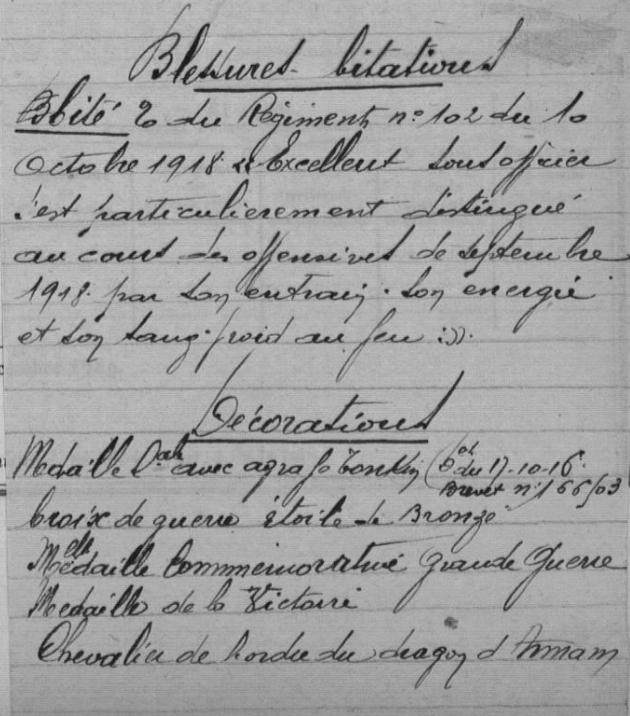 Blessures - Citations
Cité O du Régiment n° 102 du 10
Octobre 1918 « Excellent sous officier
s'est particulierement distingué
au cours des offensives de septembre
1918. par son entrain. son energie
et son sang-froid au feu ».
Décorations
Médaille Cale avec agrafe Tonkin (Det du 17-10-16
Brevet n° 166703
Croix de guerre étoile de Bronze
Médaille Commémorative Grande Guerre
Medaille de la Victoire
Chevalier de l'ordre du dragon d'Annam